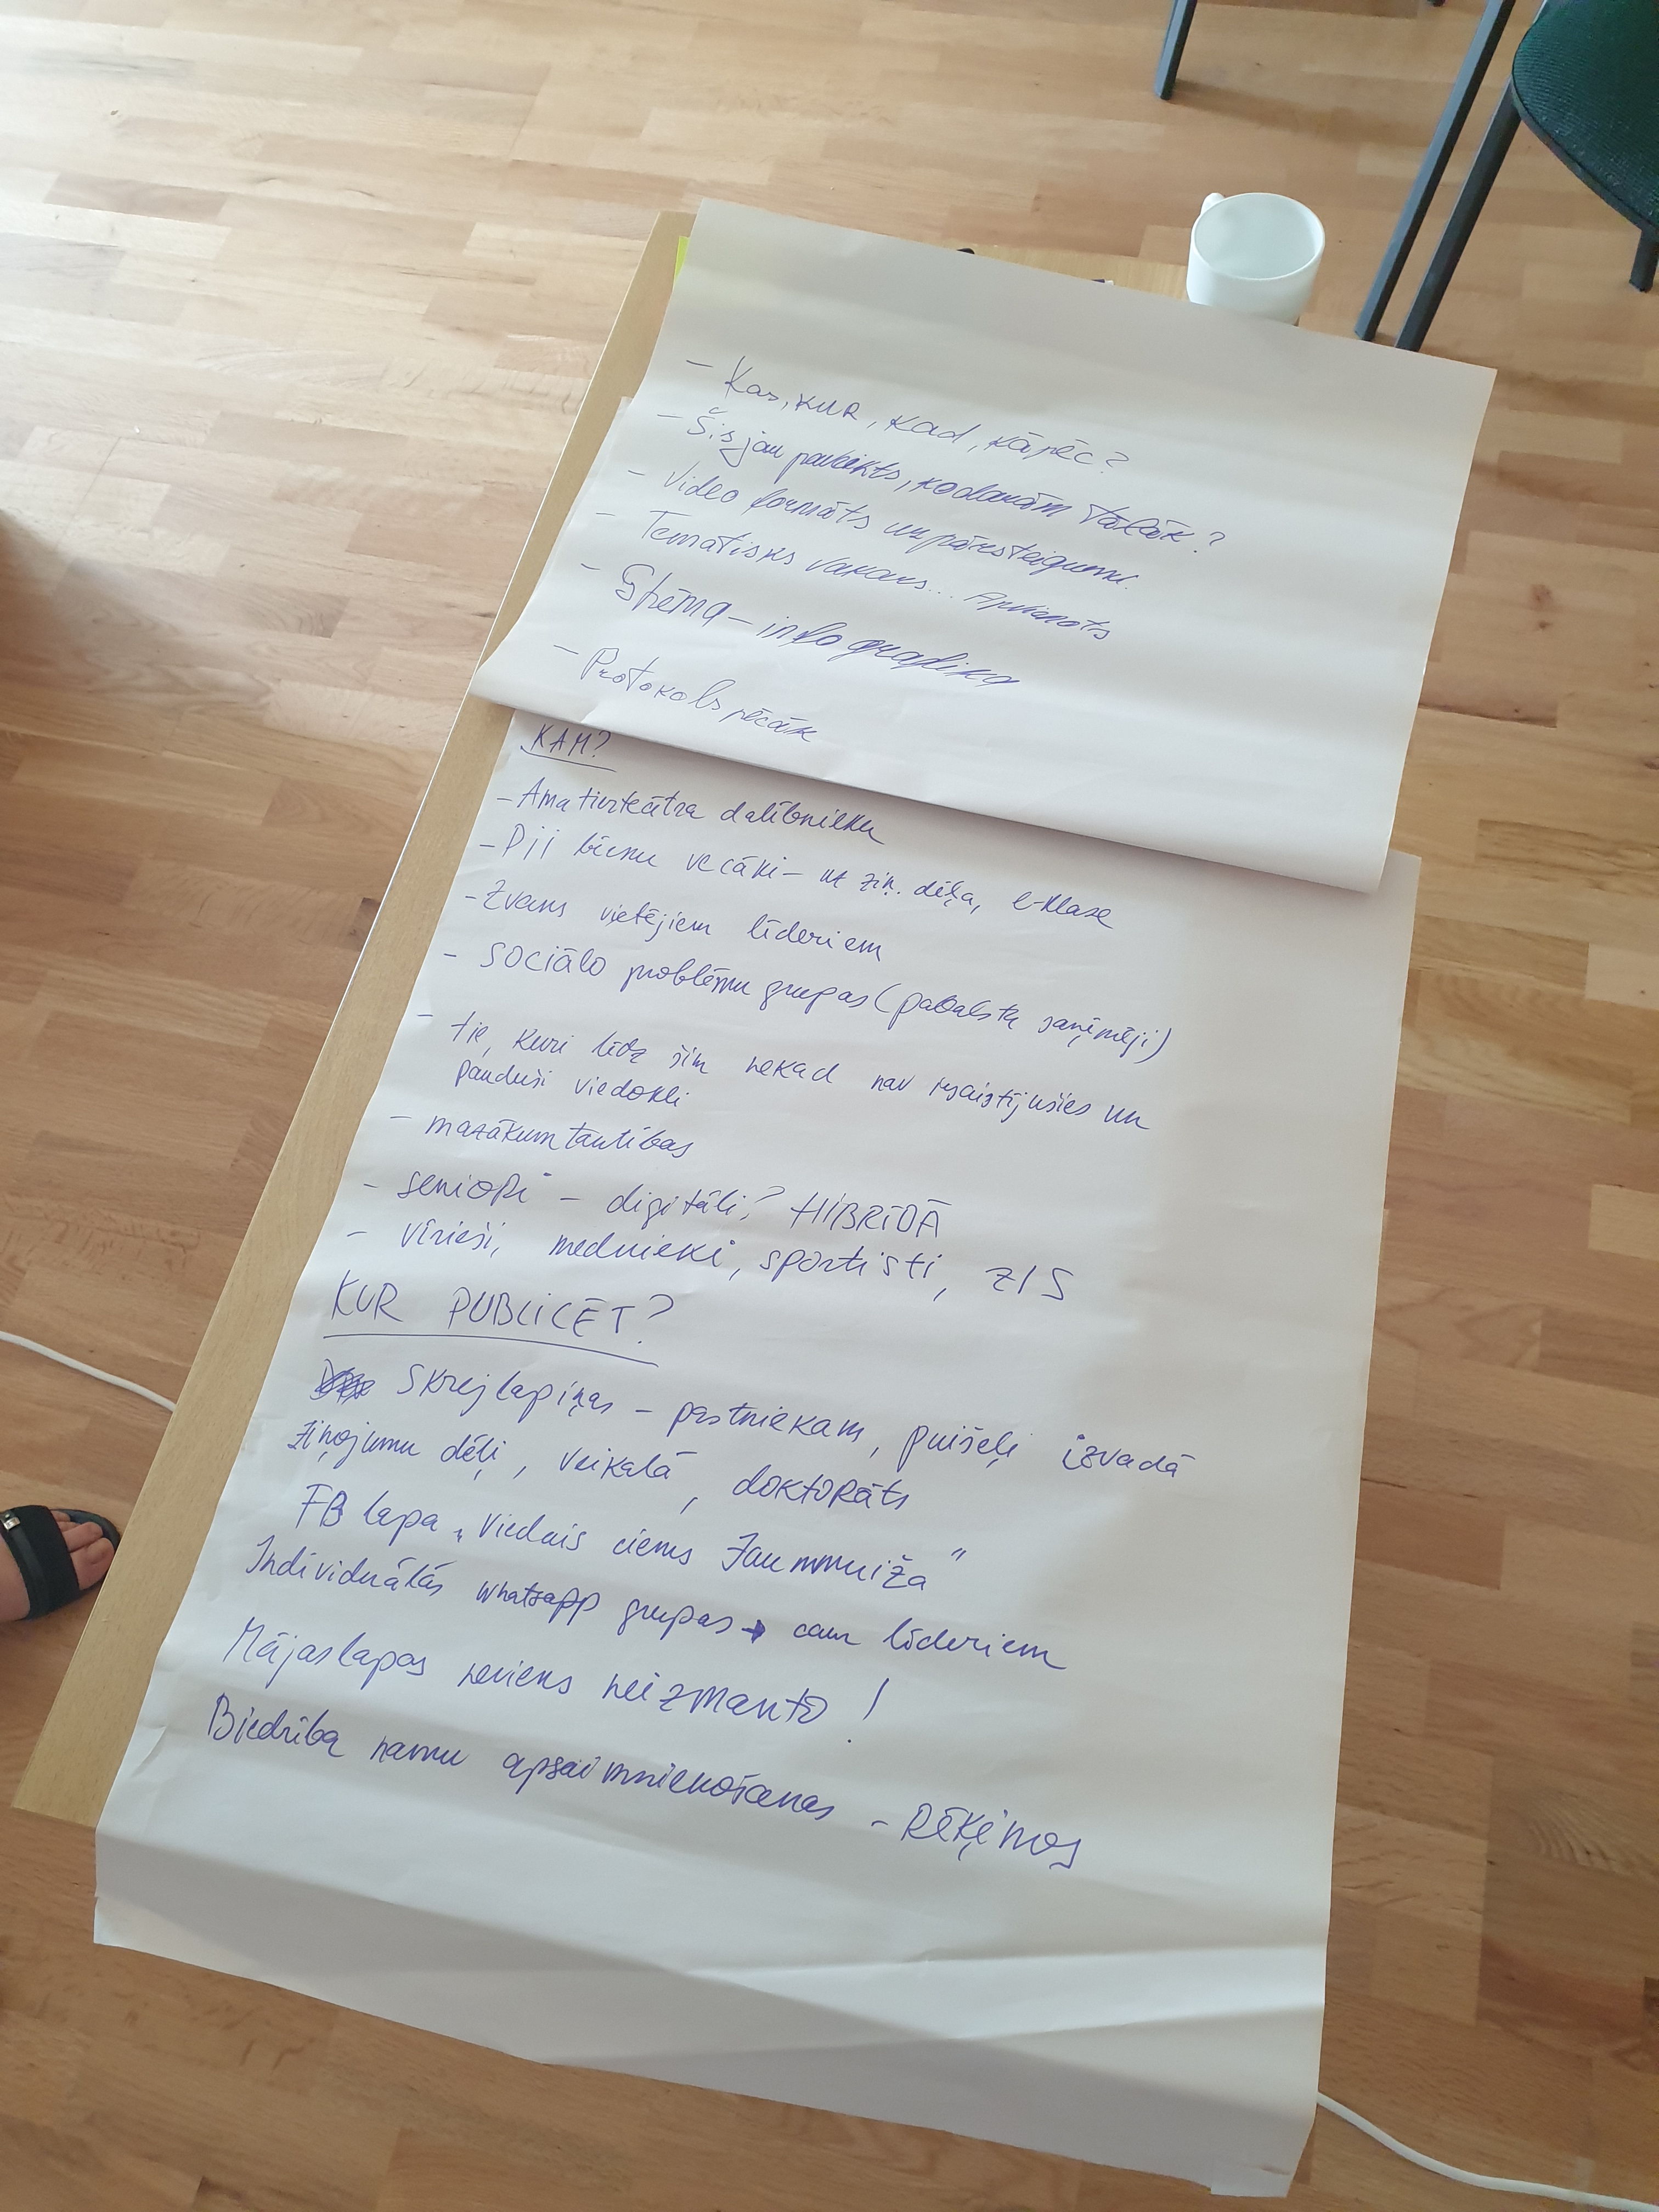 - Kas, kur, kad, kāpēc?
- Šis jau paveikts, ko darām tālāk?
- Video formāts un pārsteigumi.
- Tematisks vakars... Apvienots
- Shēma - infografika
- Protokols pēcāk
KAM?
- Amatierteātra dalībnieku
- PII bērnu vecāki - uz ziņ. dēļa, e-klase
- Zvans vietējiem līderiem
- sociālo problēmu grupas (pabalstu saņēmēji)
- tie, kuri līdz šim nekad nav iesaistījušies un
pauduši viedokli
- mazākumtautības
- seniori - digitāli? HIBRĪDĀ
- vīrieši, mednieki, sportisti, Z/S
KUR PUBLICĒT?
Skrejlapiņas - pastniekam, puišeļi izvadā
ziņojumu dēļi, veikalā, doktorāts
FB lapa "Viedais ciems Jaunmuiža"
Individuālās whatsapp grupas → caur līderiem
Mājaslapas neviens neizmanto!
Biedrība namu apsaimniekošanas - RĒĶINOS